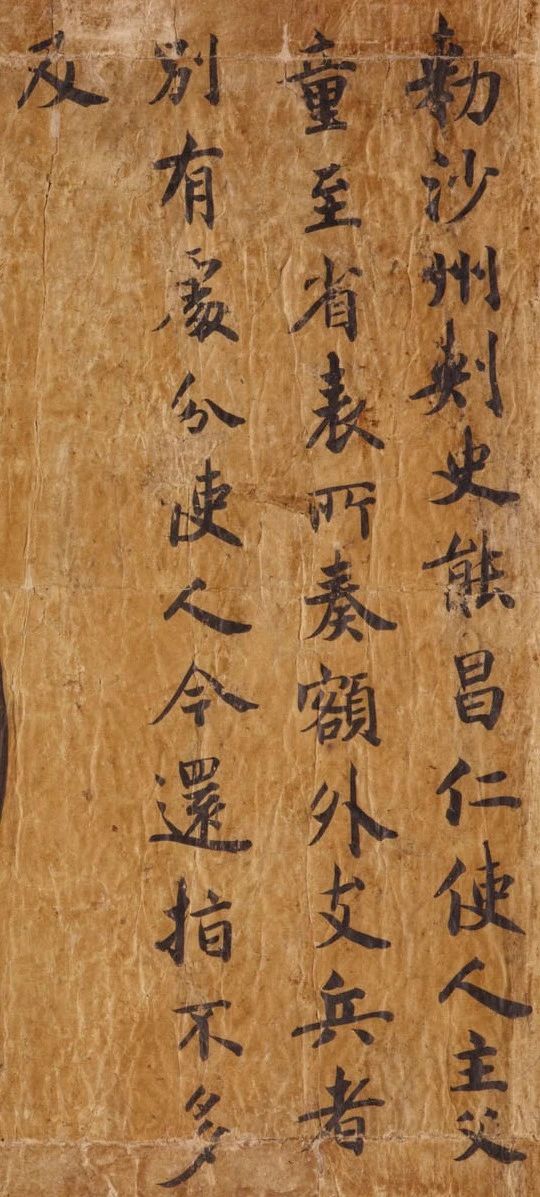 勅沙州刺史能昌仁使人主父
童至省表所奏額外支兵者
別有處分使人今還指不多
及